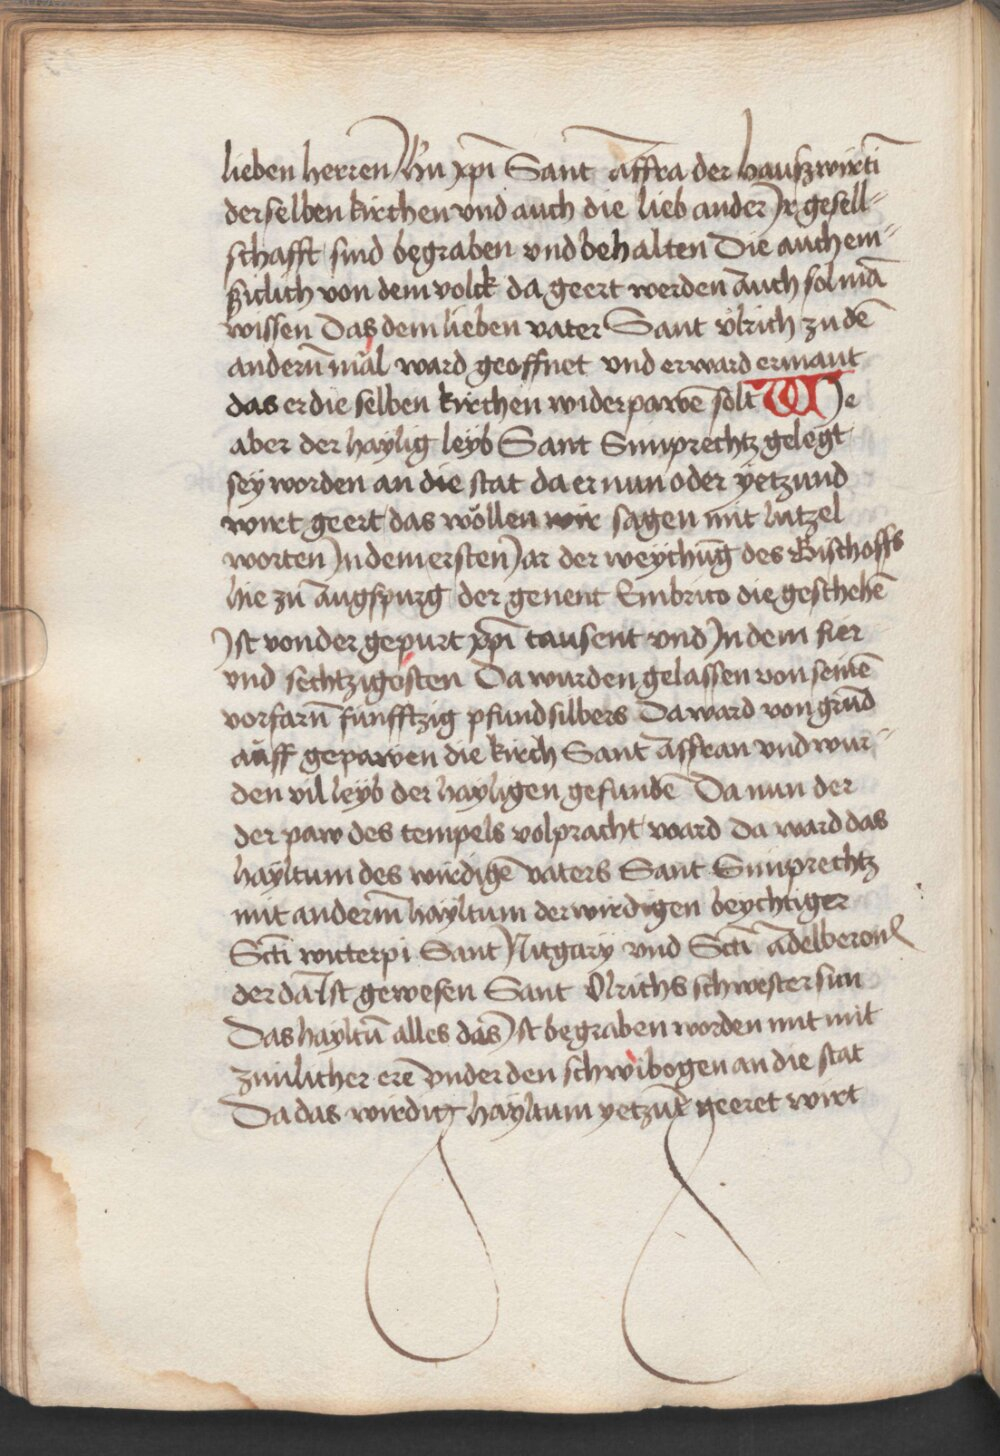 lieben herren Jhu xpi Sant affra der haußwirti
der selben kirchen vnd auch die lieb ander Ir gesell-
schafft sind begraben vnd behalten Die auch em-
ßiclich von dem volck da geert werden Auch sol mā
wissen Das dem lieben vater Sant vlrich zu dē
anderñ mal ward geoffnet vnd er ward ermant
das er die selben kirchen wider pawē solt WIe
aber der haylig leyb Sant Simprechtz gelegt
sey worden an die stat da er nun oder yetzund
wirt geert das wöllen wir sagen mit lutzel
worten In dem ersten Jar der weychūg des Bischoffs
hie zu Augspurg der genent Embrico die geschehē
Ist von der gepurt xpi tausent vnd In dem fier
vnd sechtzigosten Da wurden gelassen von seinē
vorfarñ funfftzig pfund silbers Da ward von grūd
auff gepawen die kirch Sant Affran vnd wur-
den vil leyb der hayligen gefundē Da nun der
der paw des tempels volpracht ward Da ward das
hayltum des wirdigē vaters Sant Simprechtz
mit anderm hayltum der wirdigen beychtiger
Scti wicterpi Sant Nitgary vnd Scti adelberonis
der da Ist gewesen Sant Vlrichs schwester sun
Das hayltū alles das Ist begraben worden mit mit
zimlicher erē vnder den schwibogen an die stat
Da das wirdig hayltum yetzūd geeret wirt